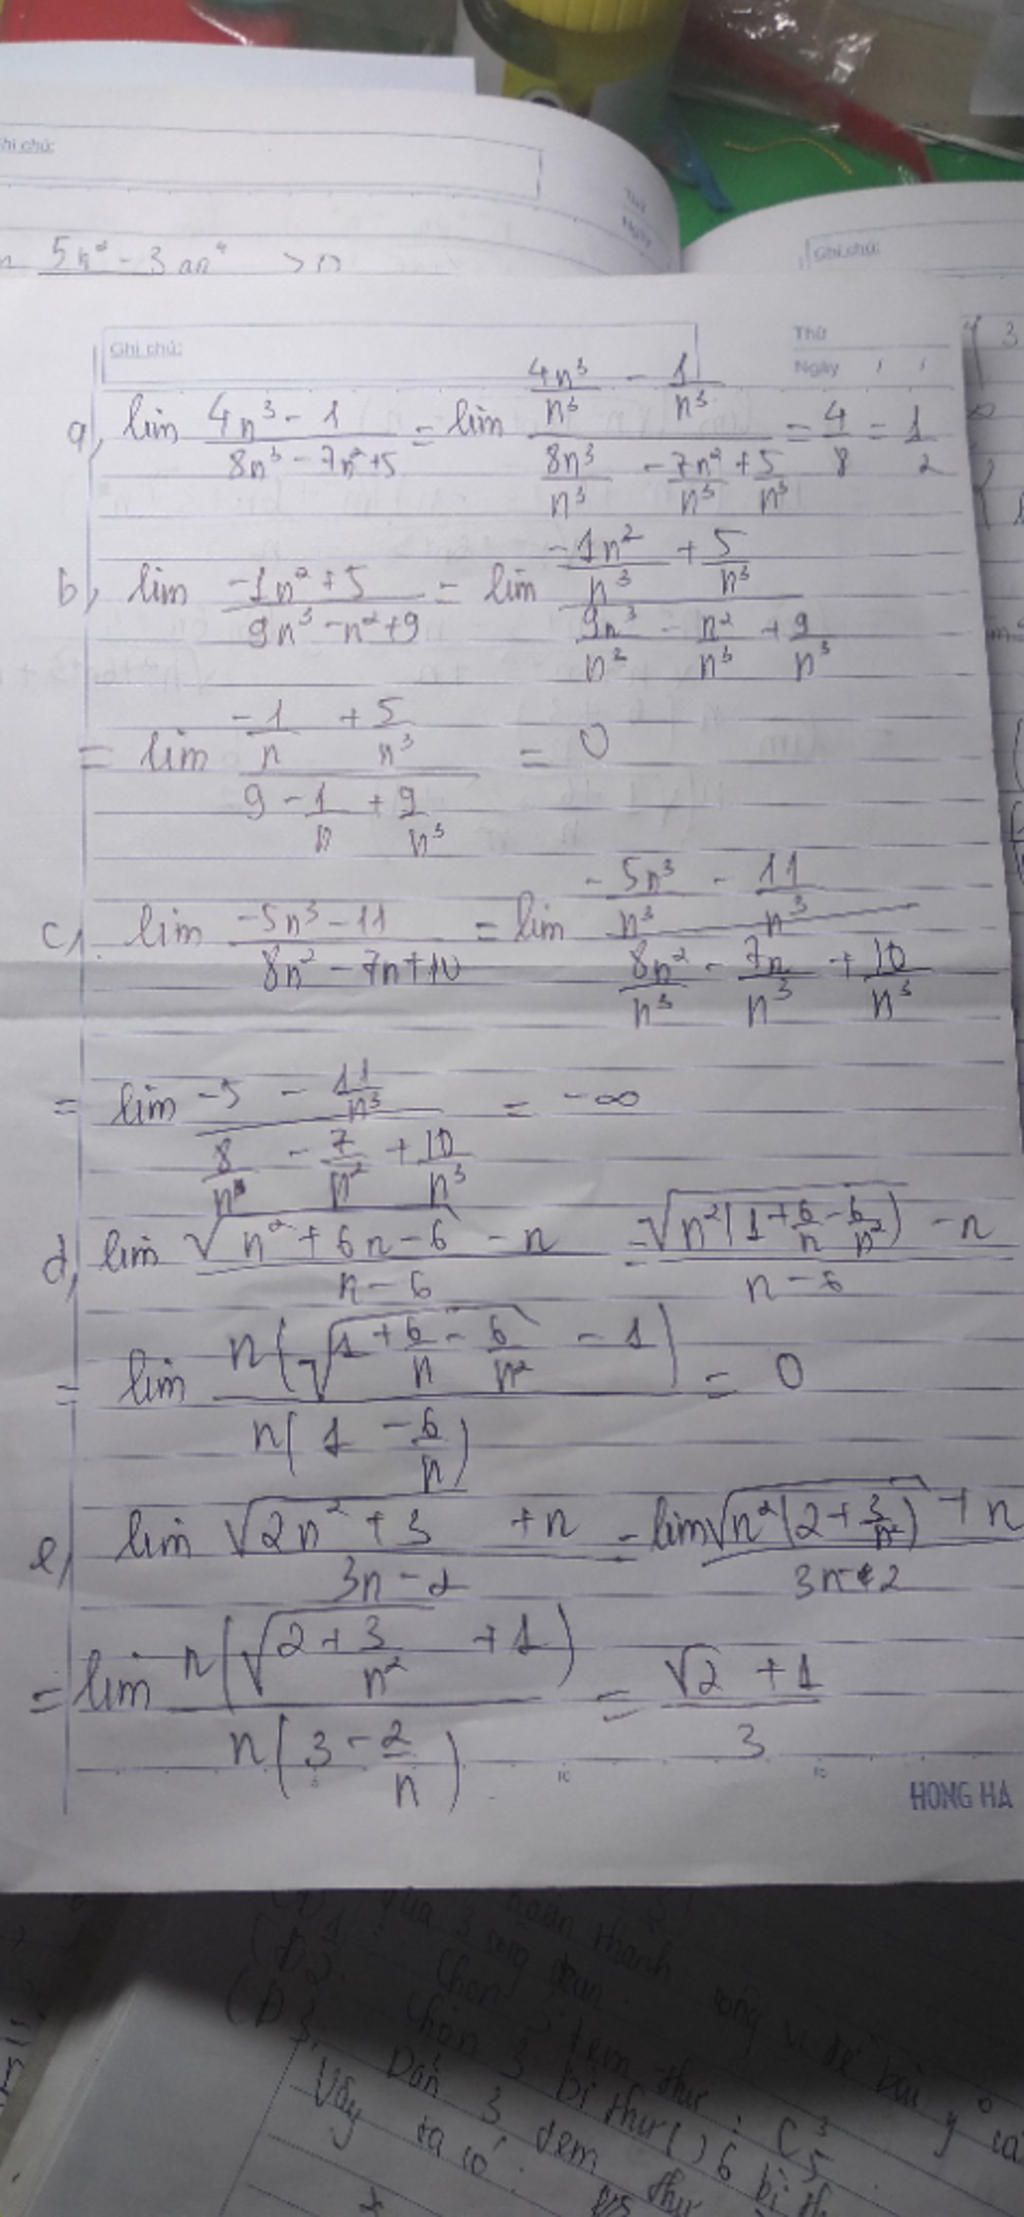 Ghi chú:
5n² - 3an⁴
Ghi chú:
Ghi chú:
Thứ
Ngày
a, lim (4n³ - 1)/(8n³ - 7n² + 5) = lim (4n³/n³ - 1/n³)/(8n³/n³ - 7n²/n³ + 5/n³) = 4/8 = 1/2
b, lim (-1n² + 5)/(9n³ - n² + 9) = lim (-1n²/n³ + 5/n³)/(9n³/n² - n²/n³ + 9/n³)
= lim (-1/n + 5/n³)/(9 - 1/n + 9/n³) = 0
c, lim (-5n³ - 11)/(8n² - 7n + 10) = lim (-5n³/n³ - 11/n³)/(8n²/n³ - 7n/n³ + 10/n³)
= lim (-5 - 11/n³)/(8/n - 7/n² + 10/n³) = -∞
d, lim (√(n² + 6n - 6) - n)/(n - 6) = (√(n²(1 + 6/n - 6/n²)) - n)/(n - 6)
= lim n(√(1 + 6/n - 6/n²) - 1)/n(1 - 6/n) = 0
e, lim (√(2n² + 3) + n)/(3n - 2) = lim (√(n²(2 + 3/n²)) + n)/(3n - 2)
= lim n(√(2 + 3/n²) + 1)/n(3 - 2/n) = (√2 + 1)/3
HONG HA
qua 3 song
Chọn 3 tem thư : C³₅
Chọn 3 bì thư () 6 bì
Dán 3 tem thư
Vậy ta có